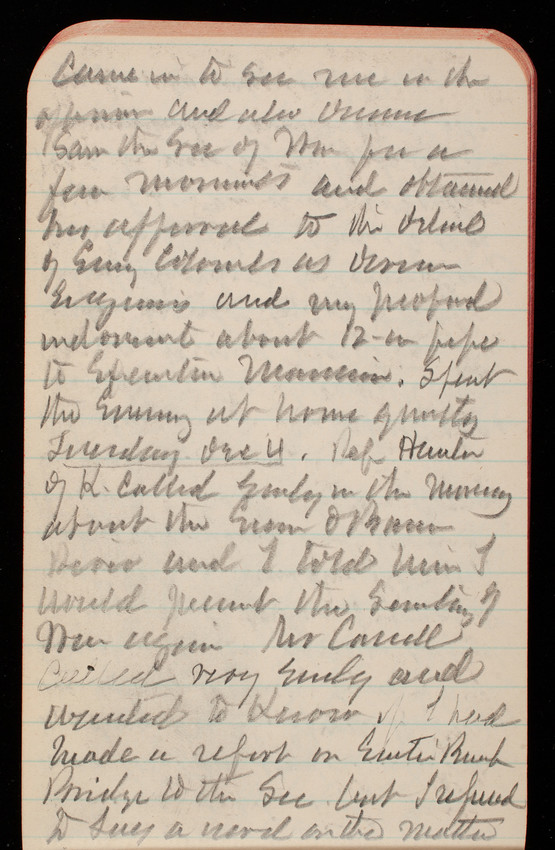 Came in to see me in the
and also
Saw the Sec of War for a
few moments and obtained
his approval to the detail
of Eng Colonels as Division
Engineers and my proposed
indorsement about 12-in pipe
to Executive Mansion. Spent
the Evening at home quietly
Tuesday Dec 4. Rep Hunter
of K. called early in the morning
about the Green & Barren
River and I told him I
would present the
War again Mr
called very early and
wanted to know if I had
made a report on
Bridge to the Sec but I refused
to say a word on the matter